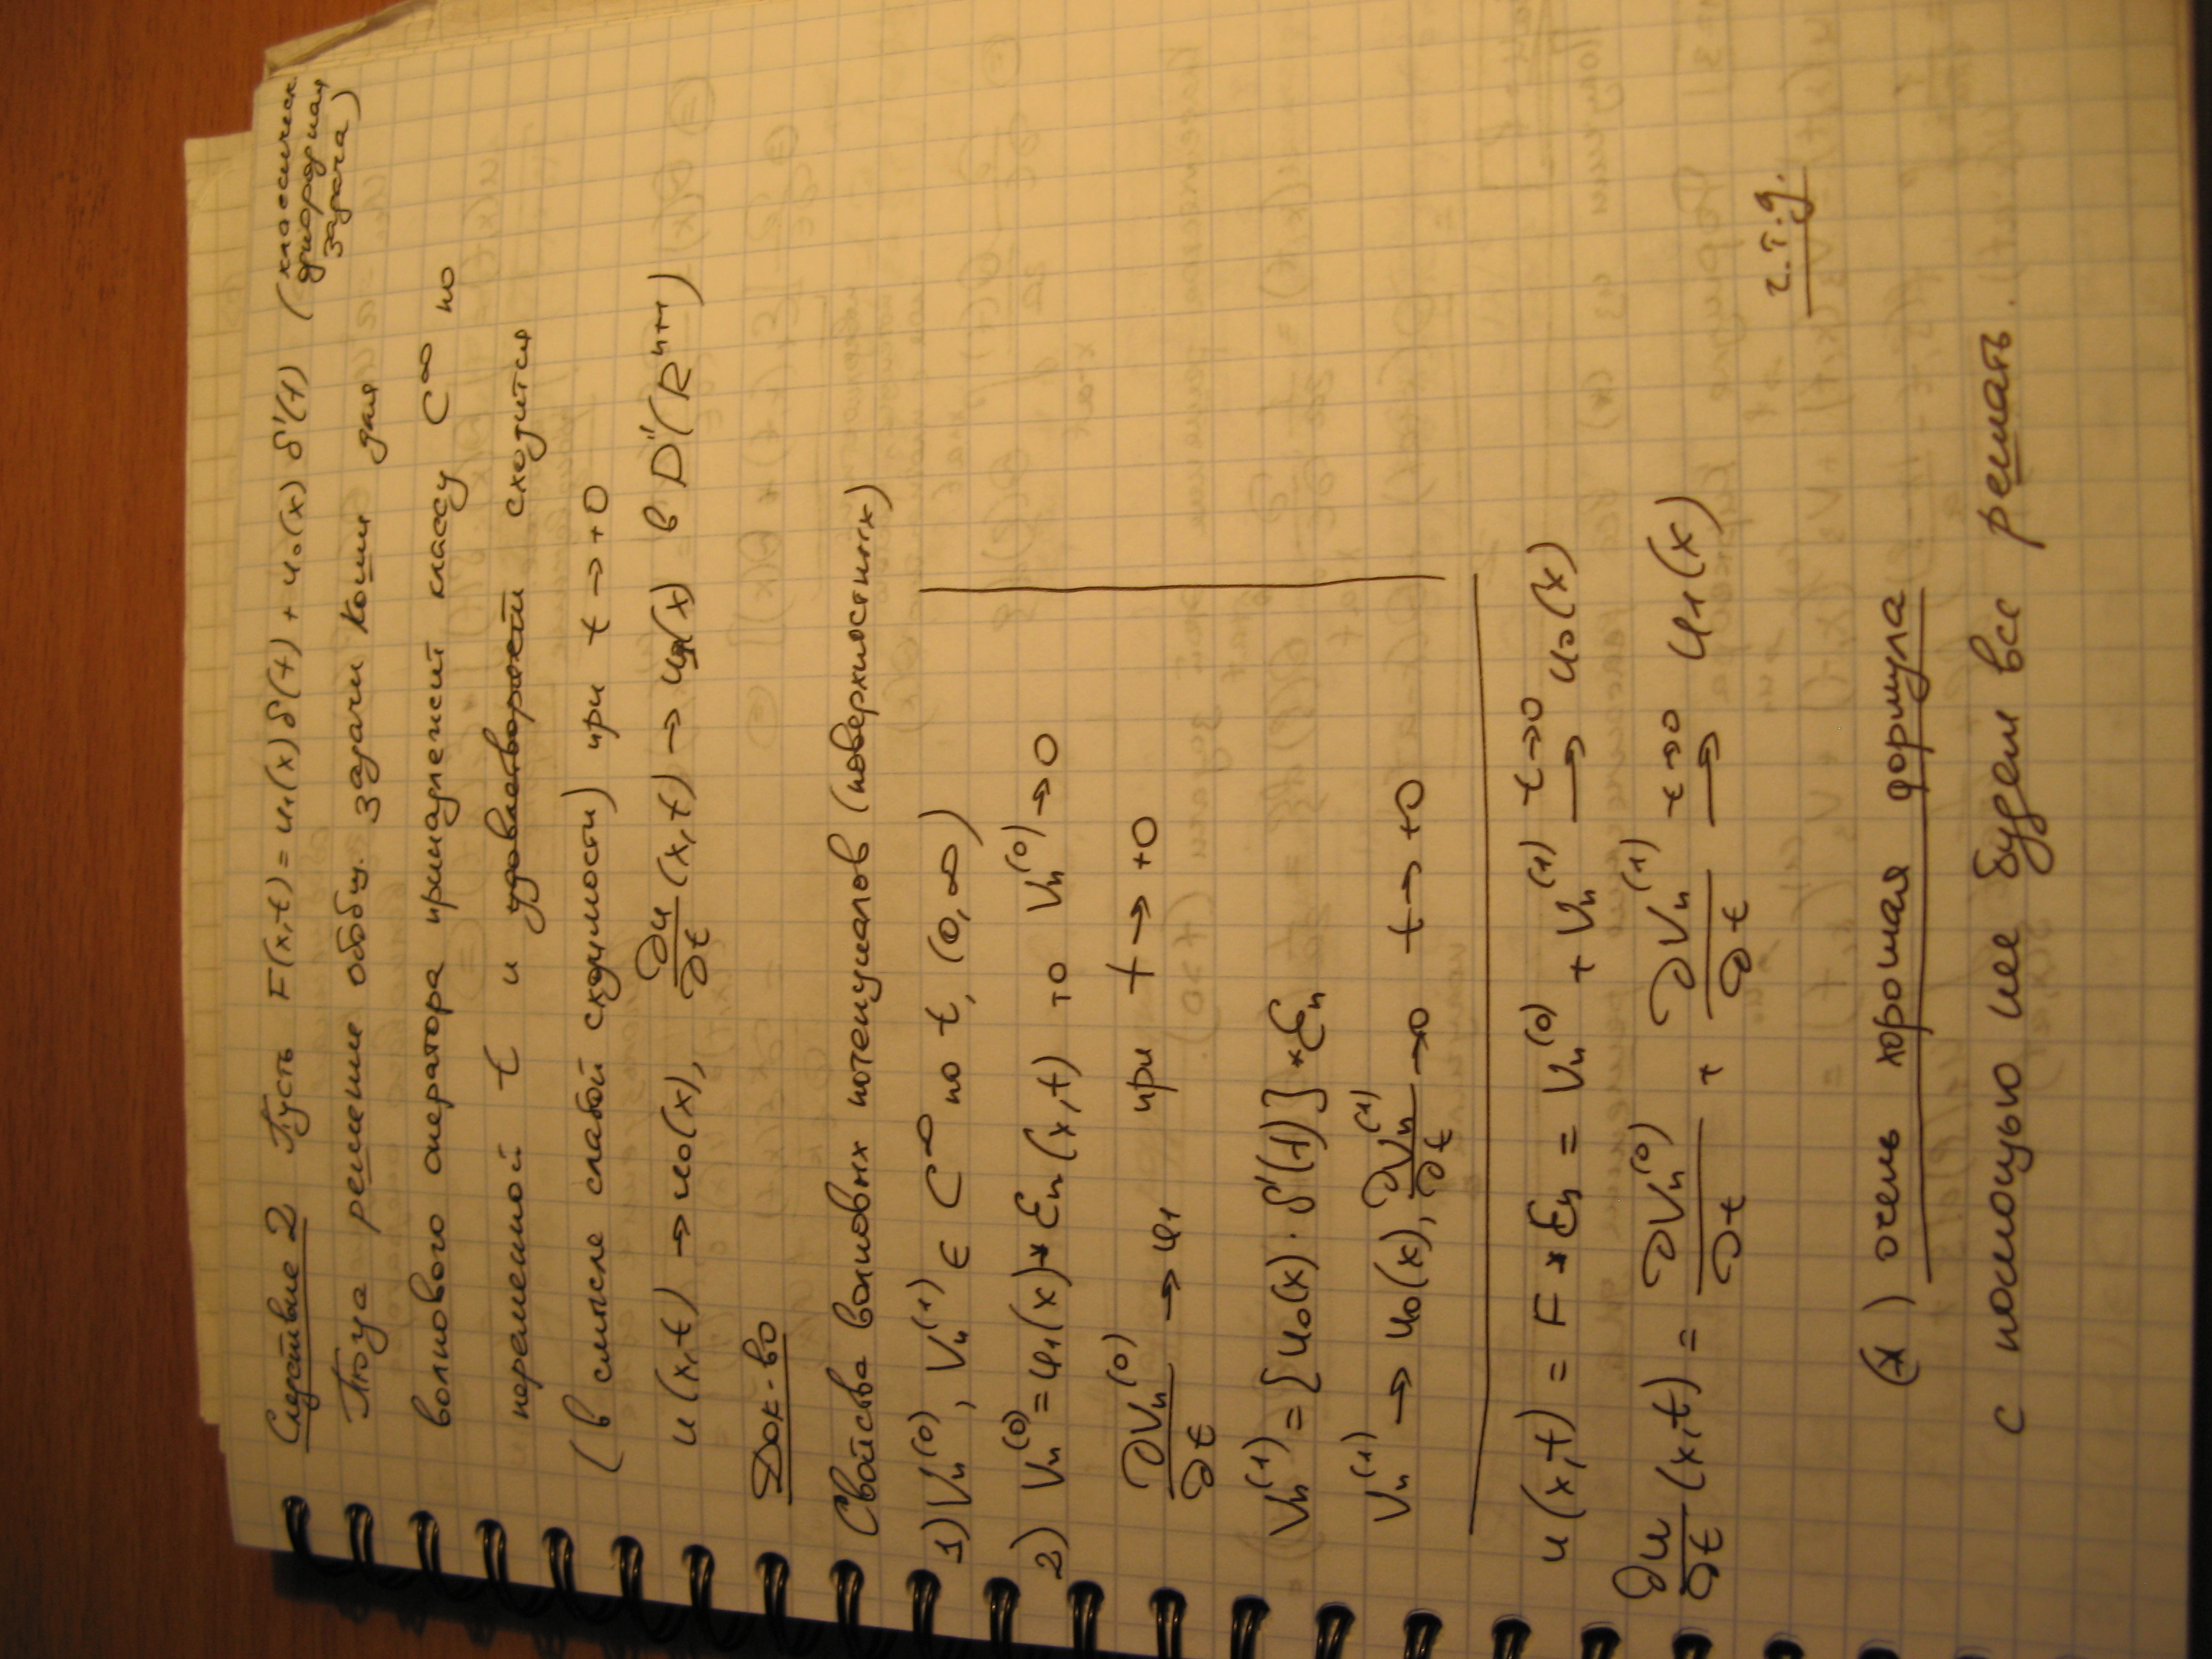 Следствие 2 Пусть F(x,t) = u₁(x) δ(t) + u₀(x) δ'(t) (классическ однородная задача)
Тогда решение обобщ. задачи Коши для
волнового оператора принадлежит классу C^∞ по
переменной t и удовлетворяет сходится
(в смысле слабой сходимости) при t → +0
u(x,t) → u₀(x), ∂u/∂t (x,t) → u₁(x) в D'(R^{n+1})
Док-во
Свойства волновых потенциалов (поверхностных)
1) V_n^{(0)}, V_n^{(1)} ∈ C^∞ по t, (0,∞)
2) V_n^{(0)} = u₁(x) * ℰ_n(x,t) то V_n^{(0)} → 0
∂V_n^{(0)}/∂t → u₁ при t → +0
V_n^{(1)} = [u₀(x) · δ'(t)] * ℰ_n
V_n^{(1)} → u₀(x), ∂V_n^{(1)}/∂t → 0 t → +0
u(x,t) = F * ℰ_n = V_n^{(0)} + V_n^{(1)} →^{t→0} u₀(x)
∂u/∂t (x,t) = ∂V_n^{(0)}/∂t + ∂V_n^{(1)}/∂t →^{t→0} u₁(x)
ч.т.д.
(*) очень хорошая формула
с помощью нее будем все решать.